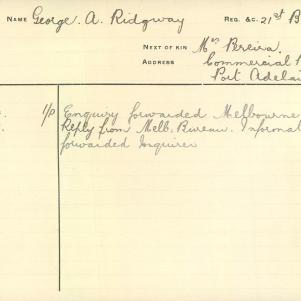 NAME George. A. Ridgway REG. &C. 21st B
NEXT OF KIN Mrs Pereira.
ADDRESS Commercial
Port Adelai
1/p Enquiry forwarded Melbourne
Reply from Melb. Bureau. Informat
forwarded Inquirer